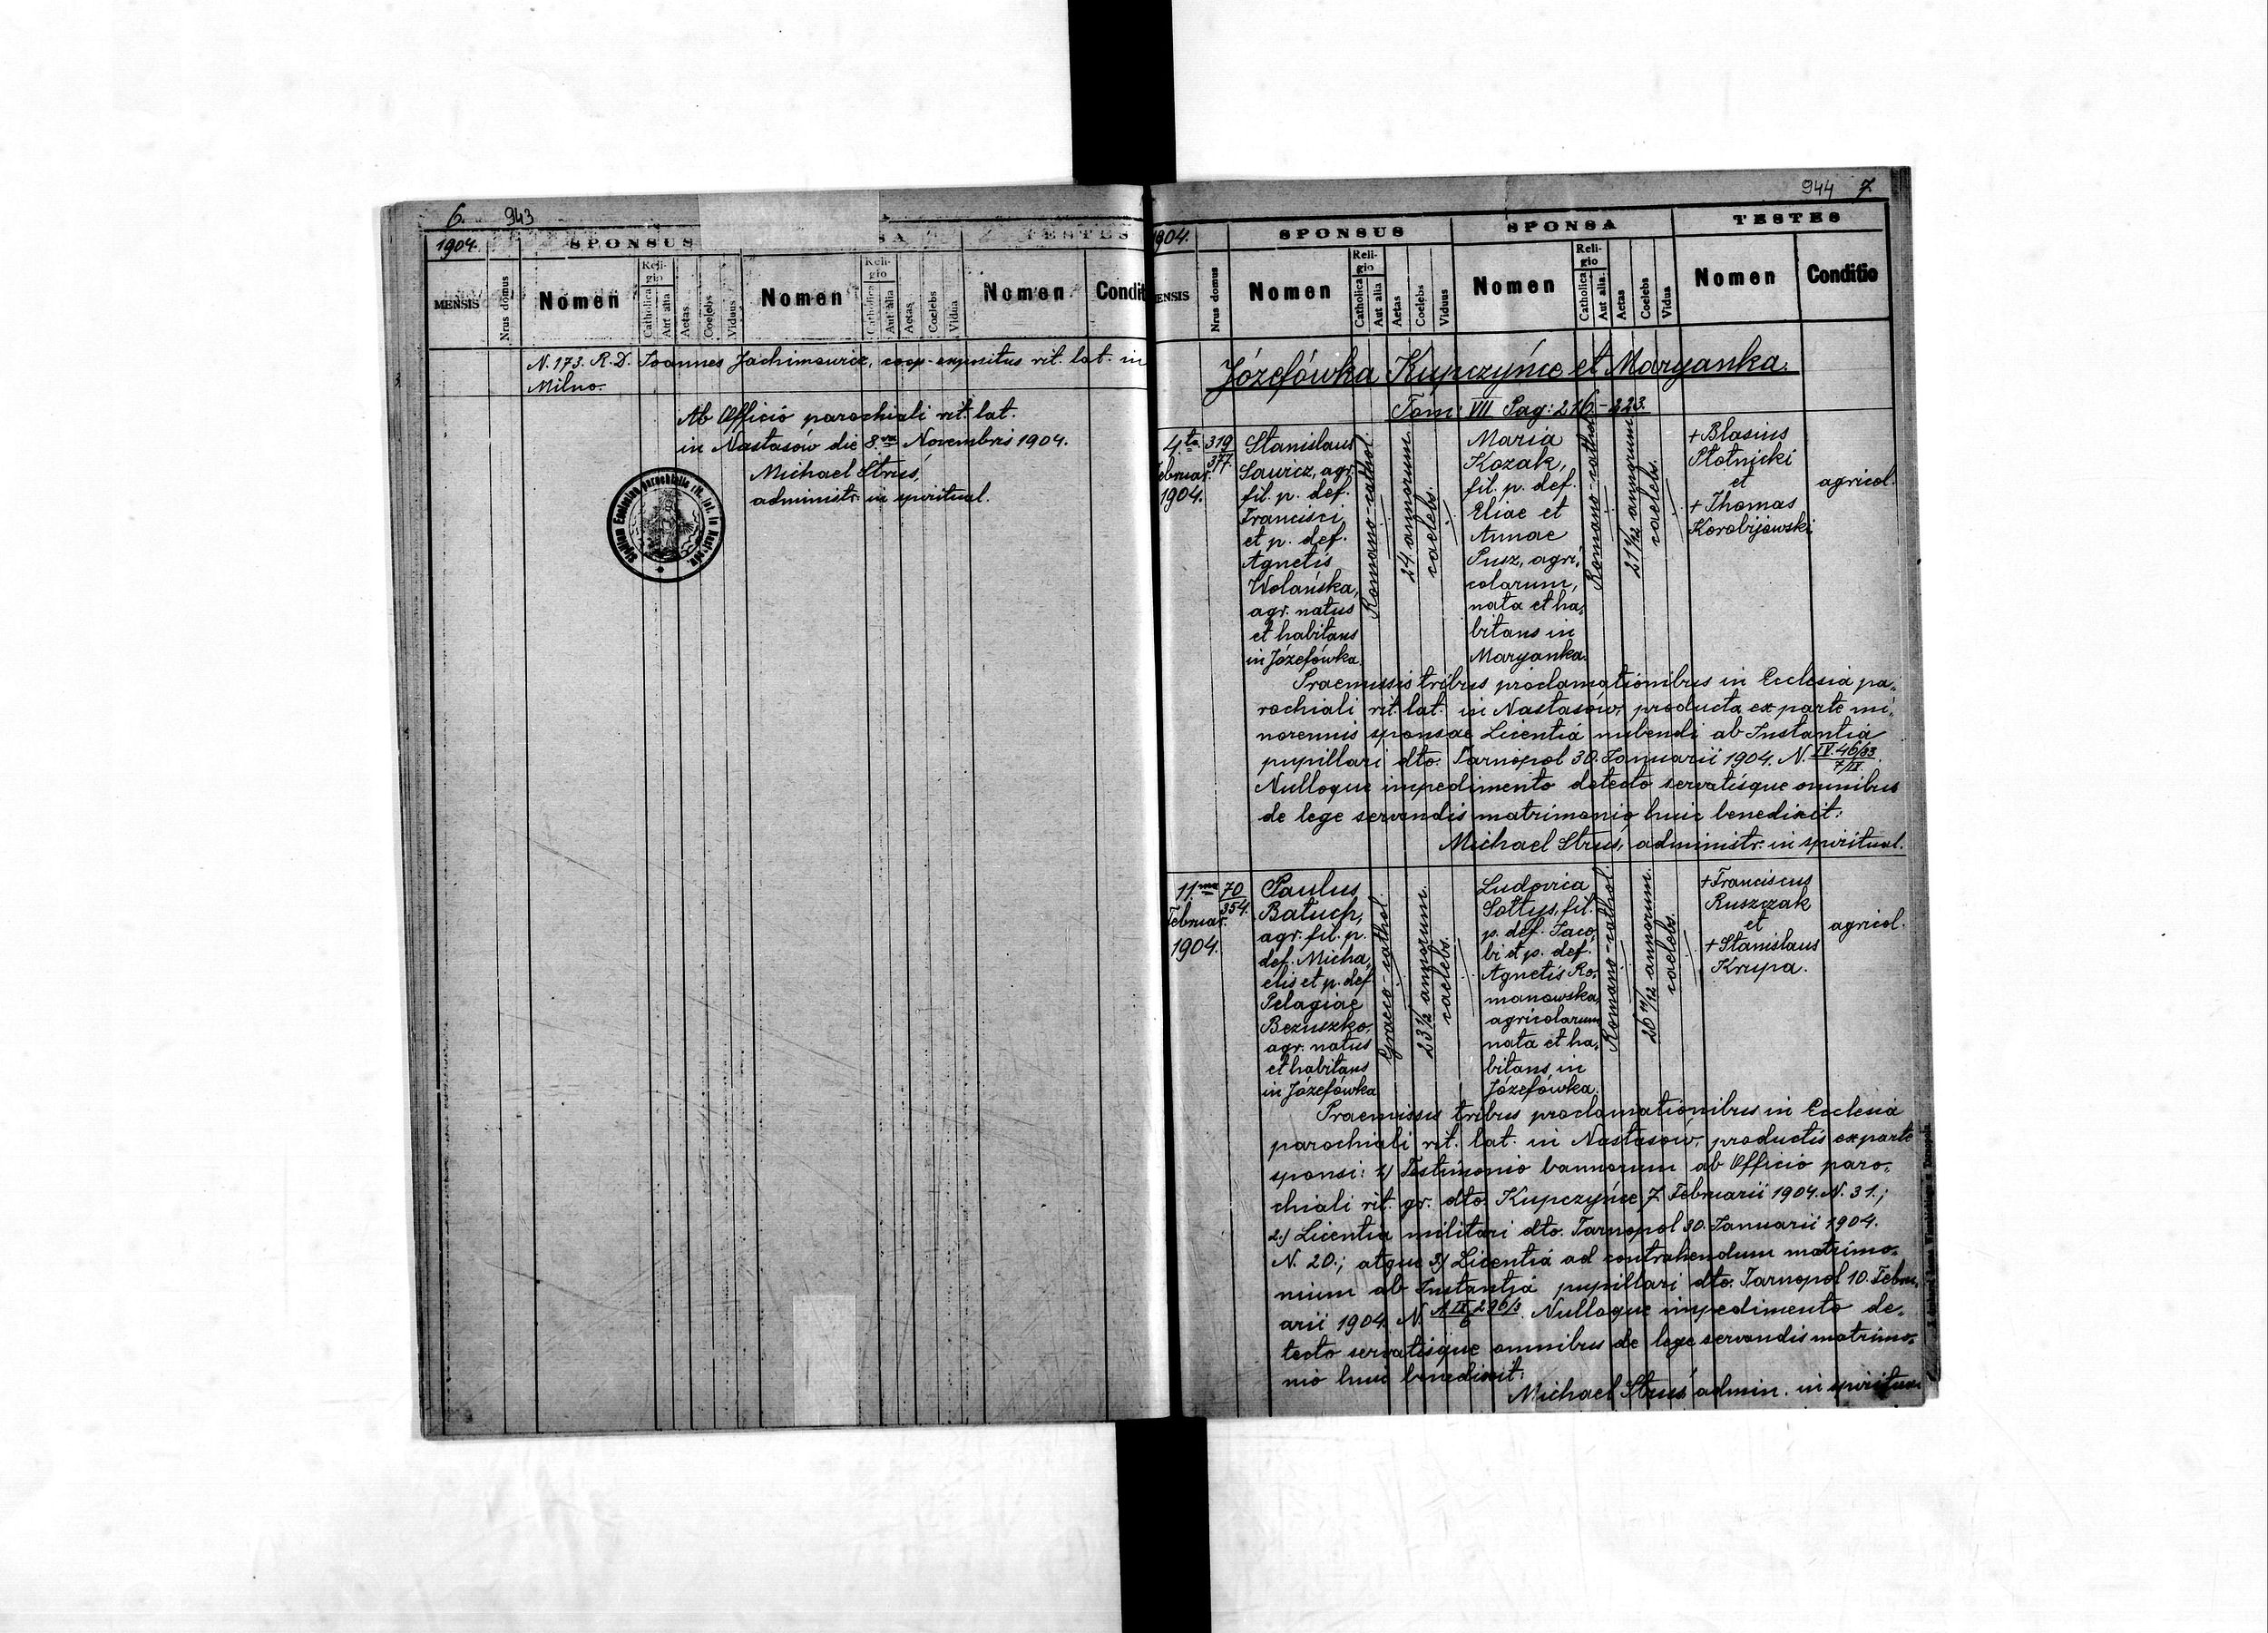 6. 943
1904. SPONSUS SA TESTES
MENSIS Nrus domus Nomen Religio Catholica Aut alia Aetas Coelebs Viduus Nomen Religio Catholica Aut alia Aetas Coelebs Vidua Nomen Condit
N. 173. R. D. Joannes Jachimowicz, coop-expositus rit. lat. in
Milno.
Ab Officio parochiali rit. lat.
in Nastasów die 8.va Novembris 1904.
Michael Struś,
administr. in spiritual.
944 7.
1904. SPONSUS SPONSA TESTES
MENSIS Nrus domus Nomen Religio Catholica Aut alia Aetas Coelebs Viduus Nomen Religio Catholica Aut alia Aetas Coelebs Vidua Nomen Conditio
Józefówka Kupczyńce et Maryanka.
Tom: VII Pag: 216-223.
4.ta
Februar.
1904.
319
377.
Stanislaus
Sawicz, agr.
fil. p. def.
Francisci
et p. def.
Agnetis
Wolańska,
agr. natus
et habitans
in Józefówka.
Romano-cathol.
24 annorum.
caelebs.
Maria
Kozak,
fil. p. def.
Eliae et
Annae
Pusz, agri,
colarum,
nata et ha,
bitans in
Maryanka.
Romano-cathol.
annorum
caelebs.
+ Blasius
Płotnicki
et
+ Thomas
Korobijowski
agricol.
Praemissis tribus proclamationibus in Ecclesia pa,
rochiali rit. lat. in Nastasów, producta ex parte mi,
norennis sponsae Licentiâ nubendi ab Instantia
pupillari dto. Tarnopol 30. Januarii 1904. N.
Nulloque impedimento detecto servatisque omnibus
de lege servandis matrimonio huic benedixit:
Michael Struś, administr. in spiritual.
11.ma
Februar.
1904.
70
354.
Paulus
Batuch,
agr. fil. p.
def. Micha,
elis et p. def.
Pelagiae
Bezuszko,
agr. natus
et habitans
in Józefówka
Graeco-cathol.
23 1/2 annorum.
caelebs.
Ludovica
Sołtys, fil.
p. def. Jaco,
bi et p. def.
Agnetis Ro,
manowska,
agricolarum
nata et ha,
bitans in
Józefówka.
Romano-cathol.
annorum.
caelebs.
+ Franciscus
Ruszczak
et
+ Stanislaus
Krupa.
agricol.
Praemissis tribus proclamationibus in Ecclesia
parochiali rit. lat. in Nastasów, productis ex parte
sponsi: 1) Testimonio bannorum ab Officio paro,
chiali rit. gr. dto. Kupczyńce 7. Februarii 1904. N. 31.;
2.) Licentiâ militari dto. Tarnopol 30. Januarii 1904.
N. 20.; atque 3) Licentiâ ad contrahendum matrimo,
nium ab Instantiâ pupillari dto. Tarnopol 10. Febru,
arii 1904. N. Nulloque impedimento de,
tecto servatisque omnibus de lege servandis matrimo,
nio huic benedixit:
Michael Struś admin. in spiritual.